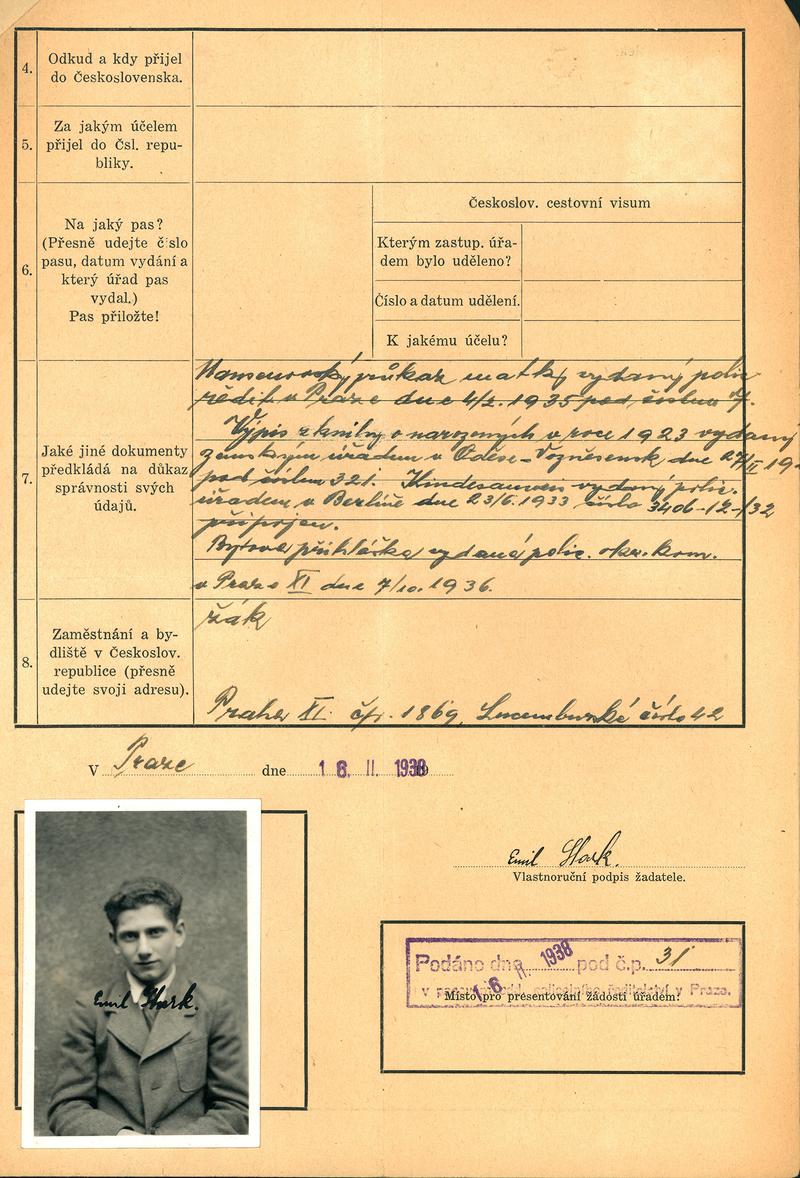 4.
Odkud a kdy přijel
do Československa.
5.
Za jakým účelem
přijel do Čsl. repu-
bliky.
6.
Na jaký pas?
(Přesně udejte číslo
pasu, datum vydání a
který úřad pas
vydal.)
Pas přiložte!
Českoslov. cestovní visum
Kterým zastup. úřa-
dem bylo uděleno?
Číslo a datum udělení.
K jakému účelu?
7.
Jaké jiné dokumenty
předkládá na důkaz
správnosti svých
údajů.
průkaz matky vydaný polic.
ředit. v Praze dne 4/2. 1935 pod číslem
Výpis z knihy o narozených v roce 1923 vydaný
úřadem v Oděse - Vozněsensk dne
pod číslem 321. Kindesausweis vydaný polic.
úřadem v Berlíně dne 23/6. 1933 číslo 3406-12-/32
připojen.
Bytová přihláška vydaná polic. okr. kom.
v Praze XI dne 7/10. 1936.
8.
Zaměstnání a by-
dliště v Českoslov.
republice (přesně
udejte svoji adresu).
žák
Praha XI. čp. 1869, Lucemburská číslo 42
V Praze dne 16. II. 1938
Emil Stark.
Vlastnoruční podpis žadatele.
Emil Stark.
Podáno dne 16. II. 1938 pod č.p. 31
v policejního ředitelství v Praze.
Místo pro presentování žádosti úřadem: